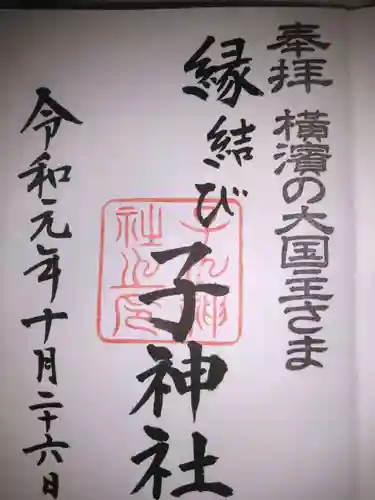 奉拝 横濱の大国主さま
縁結び子神社
子之神社之印
令和元年十月二十六日